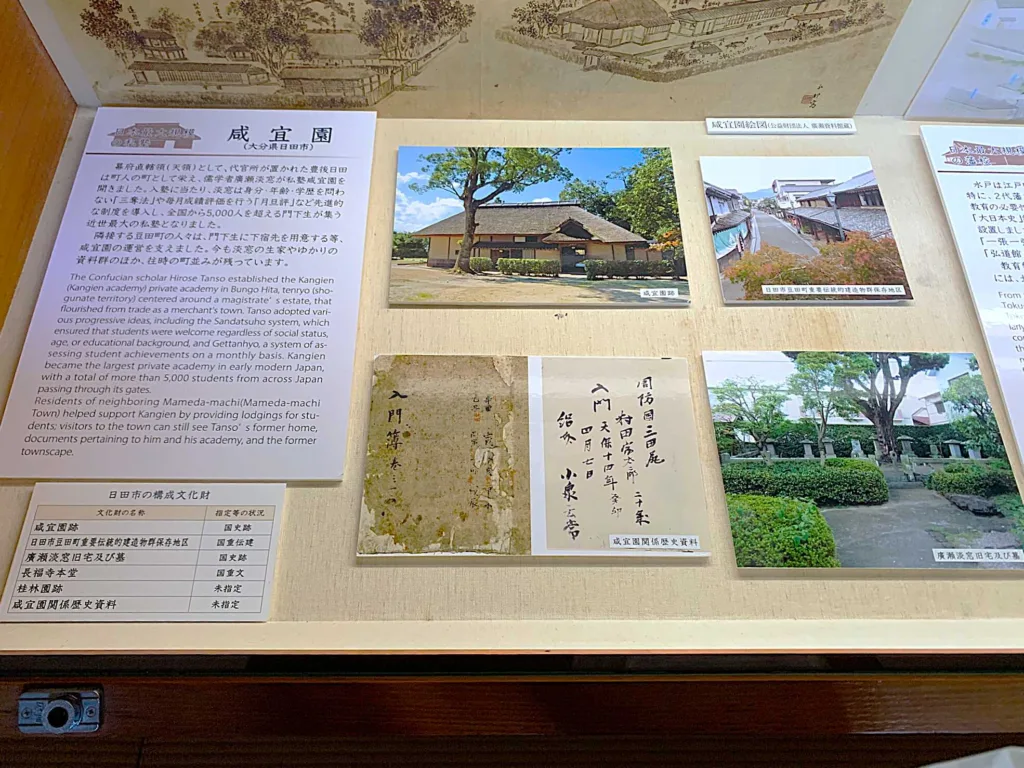 咸宜園
(大分県日田市)
幕府直轄領(天領)として、代官所が置かれた豊後日田
は町人の町として栄え、儒学者廣瀬淡窓が私塾咸宜園を
開きました。入塾に当たり、淡窓は身分・年齢・学歴を問わ
ない「三奪法」や毎月成績評価を行う「月旦評」など先進的
な制度を導入し、全国から5,000人を超える門下生が集う
近世最大の私塾となりました。
隣接する豆田町の人々は、門下生に下宿先を用意する等、
咸宜園の運営を支えました。今も淡窓の生家やゆかりの
資料群のほか、往時の町並みが残っています。
The Confucian scholar Hirose Tanso established the Kangien
(Kangien academy) private academy in Bungo Hita, tenryo (sho-
gunate territory) centered around a magistrate's estate, that
flourished from trade as a merchant's town. Tanso adopted vari-
ous progressive ideas, including the Sandatsuho system, which
ensured that students were welcome regardless of social status,
age, or educational background, and Gettanhyo, a system of as-
sessing student achievements on a monthly basis. Kangien
became the largest private academy in early modern Japan,
with a total of more than 5,000 students from across Japan
passing through its gates.
Residents of neighboring Mameda-machi(Mameda-machi
Town) helped support Kangien by providing lodgings for stu-
dents; visitors to the town can still see Tanso's former home,
documents pertaining to him and his academy, and the former
townscape.
日田市の構成文化財
文化財の名称 指定等の状況
咸宜園跡 国史跡
日田市豆田町重要伝統的建造物群保存地区 国重伝建
廣瀬淡窓旧宅及び墓 国史跡
長福寺本堂 国重文
桂林園跡 未指定
咸宜園関係歴史資料 未指定
咸宜園絵図(公益財団法人 廣瀬資料館蔵)
咸宜園跡
日田市豆田町重要伝統的建造物群保存地区
入門簿
周防國三田尻
村田宗太郎 二十歳
入門 天保十四年癸卯
四月七日
咸宜園関係歴史資料
廣瀬淡窓旧宅及び墓
水戸は江戸
特に、2代藩
教育の必要性
「大日本史」
設置しまし
「一張一
「弘道館
教育
には、
From
Toku